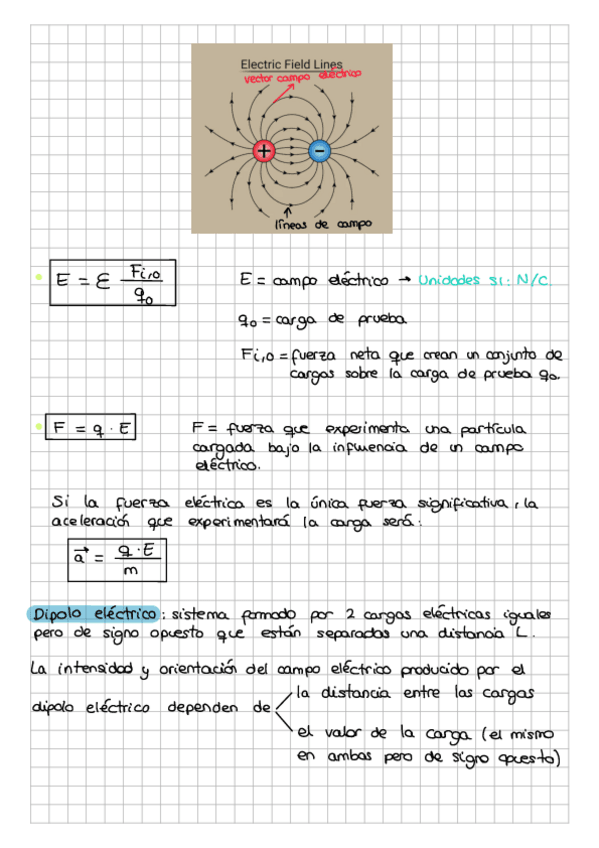 Electric Field Lines
vector campo eléctrico
+
-
líneas de campo
E = Ɛ Fi,0 / q0
E = campo eléctrico → Unidades SI: N/C.
q0 = carga de prueba
Fi,0 = fuerza neta que crean un conjunto de
cargas sobre la carga de prueba q0.
F = q · E
F = fuerza que experimenta una partícula
cargada bajo la influencia de un campo
eléctrico.
Si la fuerza eléctrica es la única fuerza significativa, la
aceleración que experimentará la carga será:
a⃗ = q·E / m
Dipolo eléctrico: sistema formado por 2 cargas eléctricas iguales
pero de signo opuesto que están separadas una distancia L.
La intensidad y orientación del campo eléctrico producido por el
dipolo eléctrico dependen de
la distancia entre las cargas
el valor de la carga (el mismo
en ambas pero de signo opuesto)